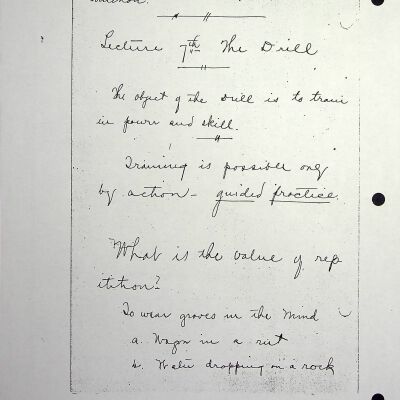 Lecture 7th The Drill
The object of the Drill is to train
in power and skill.
Training is possible only
by action - guided practice.
What is the value of rep
itition?
To wear groves in the mind
a. Wagon in a rut
b. Water dropping on a rock